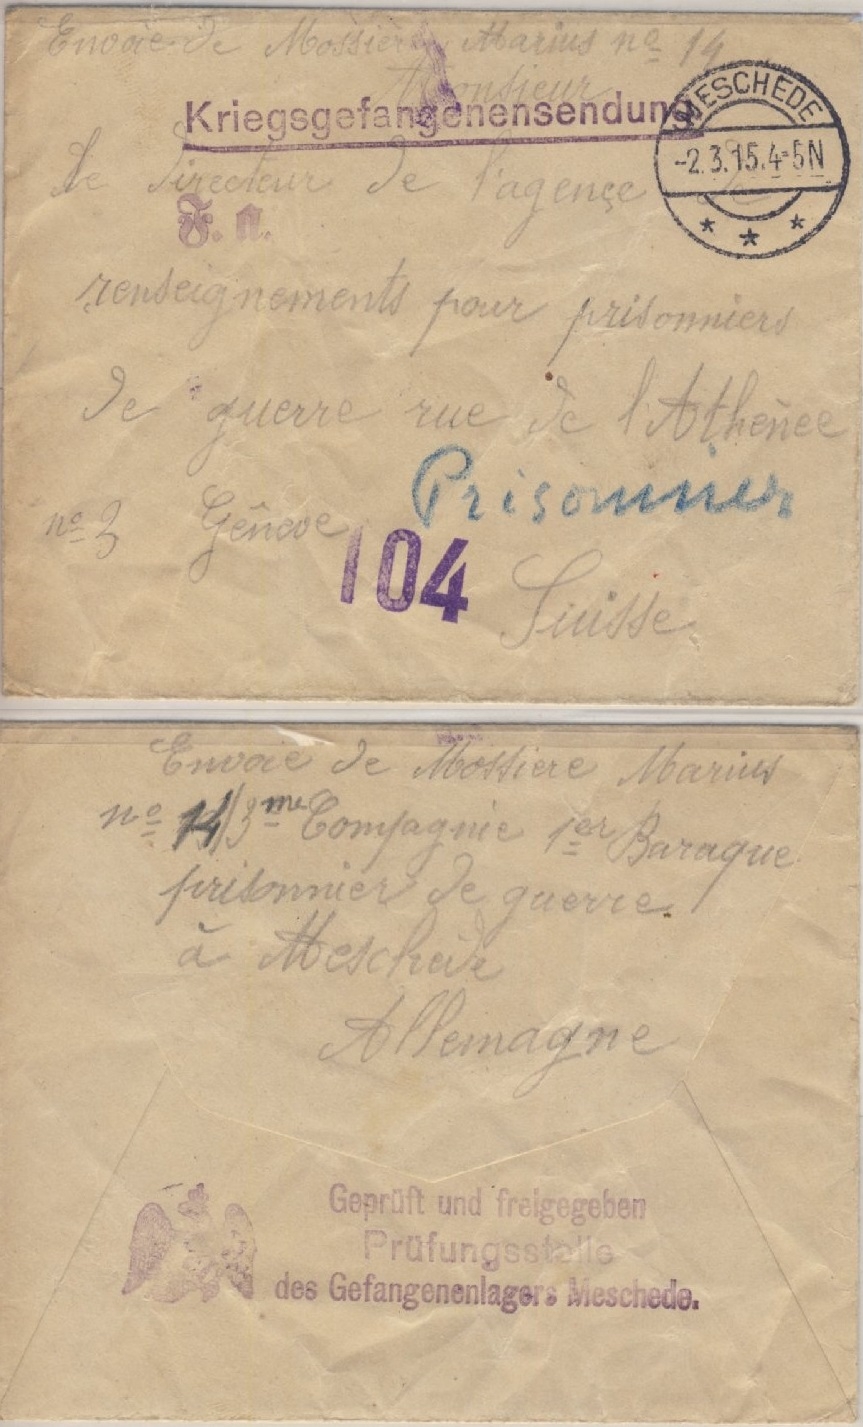 Envoie de Mossière Marius no 14
Monsieur
Kriegsgefangenensendung
MESCHEDE
-2.3.15.4-5N
Le Directeur de l'agençe de
F. a.
renseignements pour prisonniers
de guerre rue de l'Athenée
Prisonnier
no 3 Gêneve
104
Suisse
Envoie de Mossiere Marius
no 14/3me Compagnie 1er Baraque
prisonnier de guerre
à Meschède
Allemagne
Geprüft und freigegeben
Prüfungsstelle
des Gefangenenlagers Meschede.